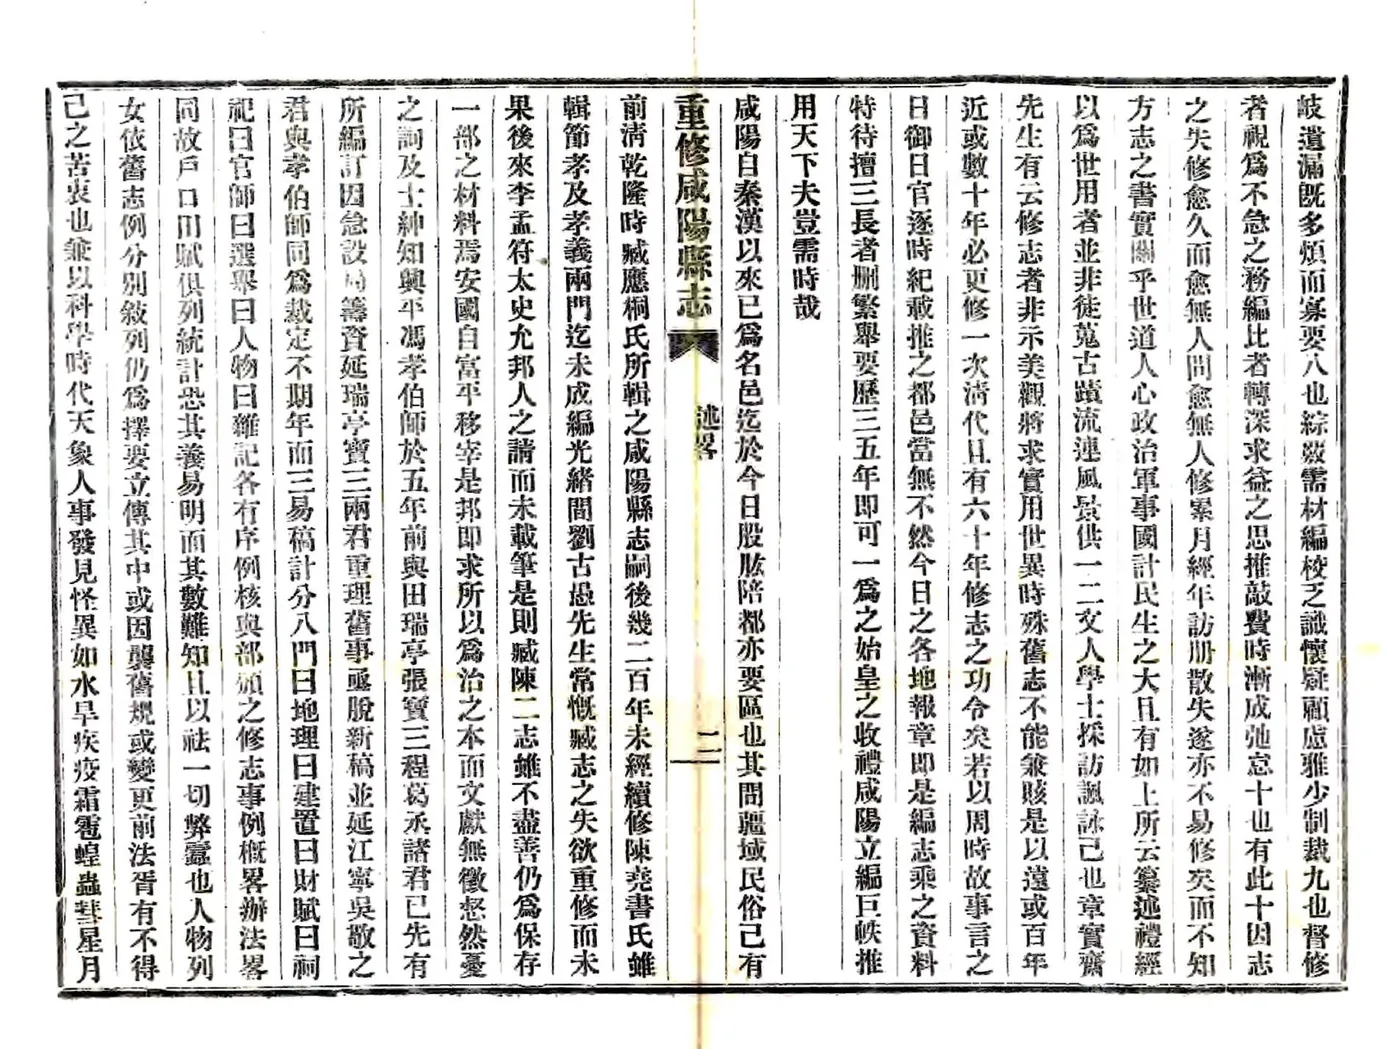 岐遺漏既多煩而寡要八也綜覈需材編校乏識懷疑顧慮雅少制裁九也督修
者視爲不急之務編比者轉深求益之思推敲費時漸成弛怠十也有此十因志
之失修愈久而愈無人問愈無人修累月經年訪册散失遂亦不易修矣而不知
方志之書實關乎世道人心政治軍事國計民生之大且有如上所云纂述禮經
以爲世用者並非徒蒐古蹟流連風景供一二文人學士採訪諷詠已也章實齋
先生有云修志者非示美觀將求實用世異時殊舊志不能兼賅是以遠或百年
近或數十年必更修一次清代且有六十年修志之功令矣若以周時故事言之
日御日官逐時紀載推之都邑當無不然今日之各地報章即是編志乘之資料
特待擅三長者删繁舉要歷三五年即可一爲之始皇之收禮咸陽立編巨帙推
用天下夫豈需時哉
咸陽自秦漢以來已爲名邑迄於今日股肱陪都亦要區也其間疆域民俗已有
重修咸陽縣志 述畧 二
前清乾隆時臧應桐氏所輯之咸陽縣志嗣後幾二百年未經續修陳堯書氏雖
輯節孝及孝義兩門迄未成編光緒間劉古愚先生常慨臧志之失欲重修而未
果後來李孟符太史允邦人之請而未載筆是則臧陳二志雖不盡善仍爲保存
一部之材料焉安國自富平移宰是邦即求所以爲治之本而文獻無徵惄然憂
之詞及士紳知興平馮孝伯師於五年前與田瑞亭張寶三程葛丞諸君已先有
所編訂因急設局籌資延瑞亭寶三兩君重理舊事亟脫新稿並延江寧吳敬之
君與孝伯師同爲裁定不期年而三易稿計分八門曰地理曰建置曰財賦曰祠
祀曰官師曰選舉曰人物曰雜記各有序例核與部頒之修志事例槪畧辦法畧
同故戶口田賦俱列統計恐其義易明而其數難知且以祛一切弊蠹也人物列
女依舊志例分別敍列仍爲擇要立傳其中或因襲舊規或變更前法胥有不得
己之苦衷也兼以科學時代天象人事發見怪異如水旱疾疫霜雹蝗蟲彗星月